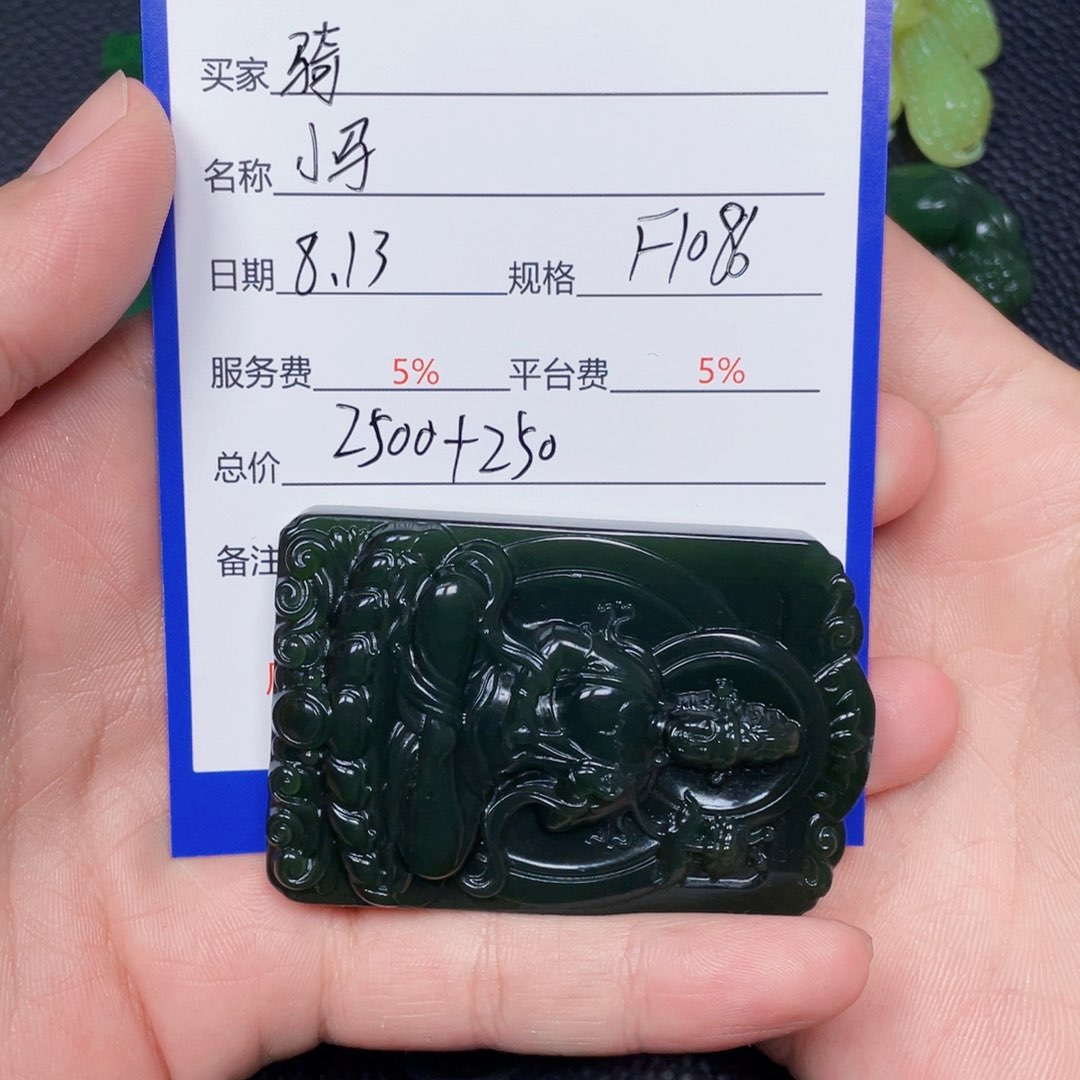 买家 骑
名称 小马
日期 8.13 规格 F1086
服务费 5% 平台费 5%
总价 2500+250
备注